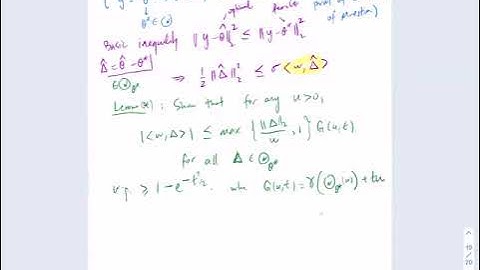 θ* ∈ Θ
optimal feasible point of
of question)
Basic inequality ‖y-θ̂‖₂² ≤ ‖y-θ*‖₂²
Δ̂ = θ̂ - θ* ⇒ ½ ‖Δ̂‖₂² ≤ σ⟨w, Δ̂⟩
Lemma (*) : Show that for any u>0,
|⟨w,Δ⟩| ≤ max { ‖Δ‖₂/u , 1 } G(u,t)
for all Δ ∈ Θ_θ*
w.p. ≥ 1-e^{-t²/2}. where G(u,t) = γ(Θ_θ*(u)) + tu
19
20